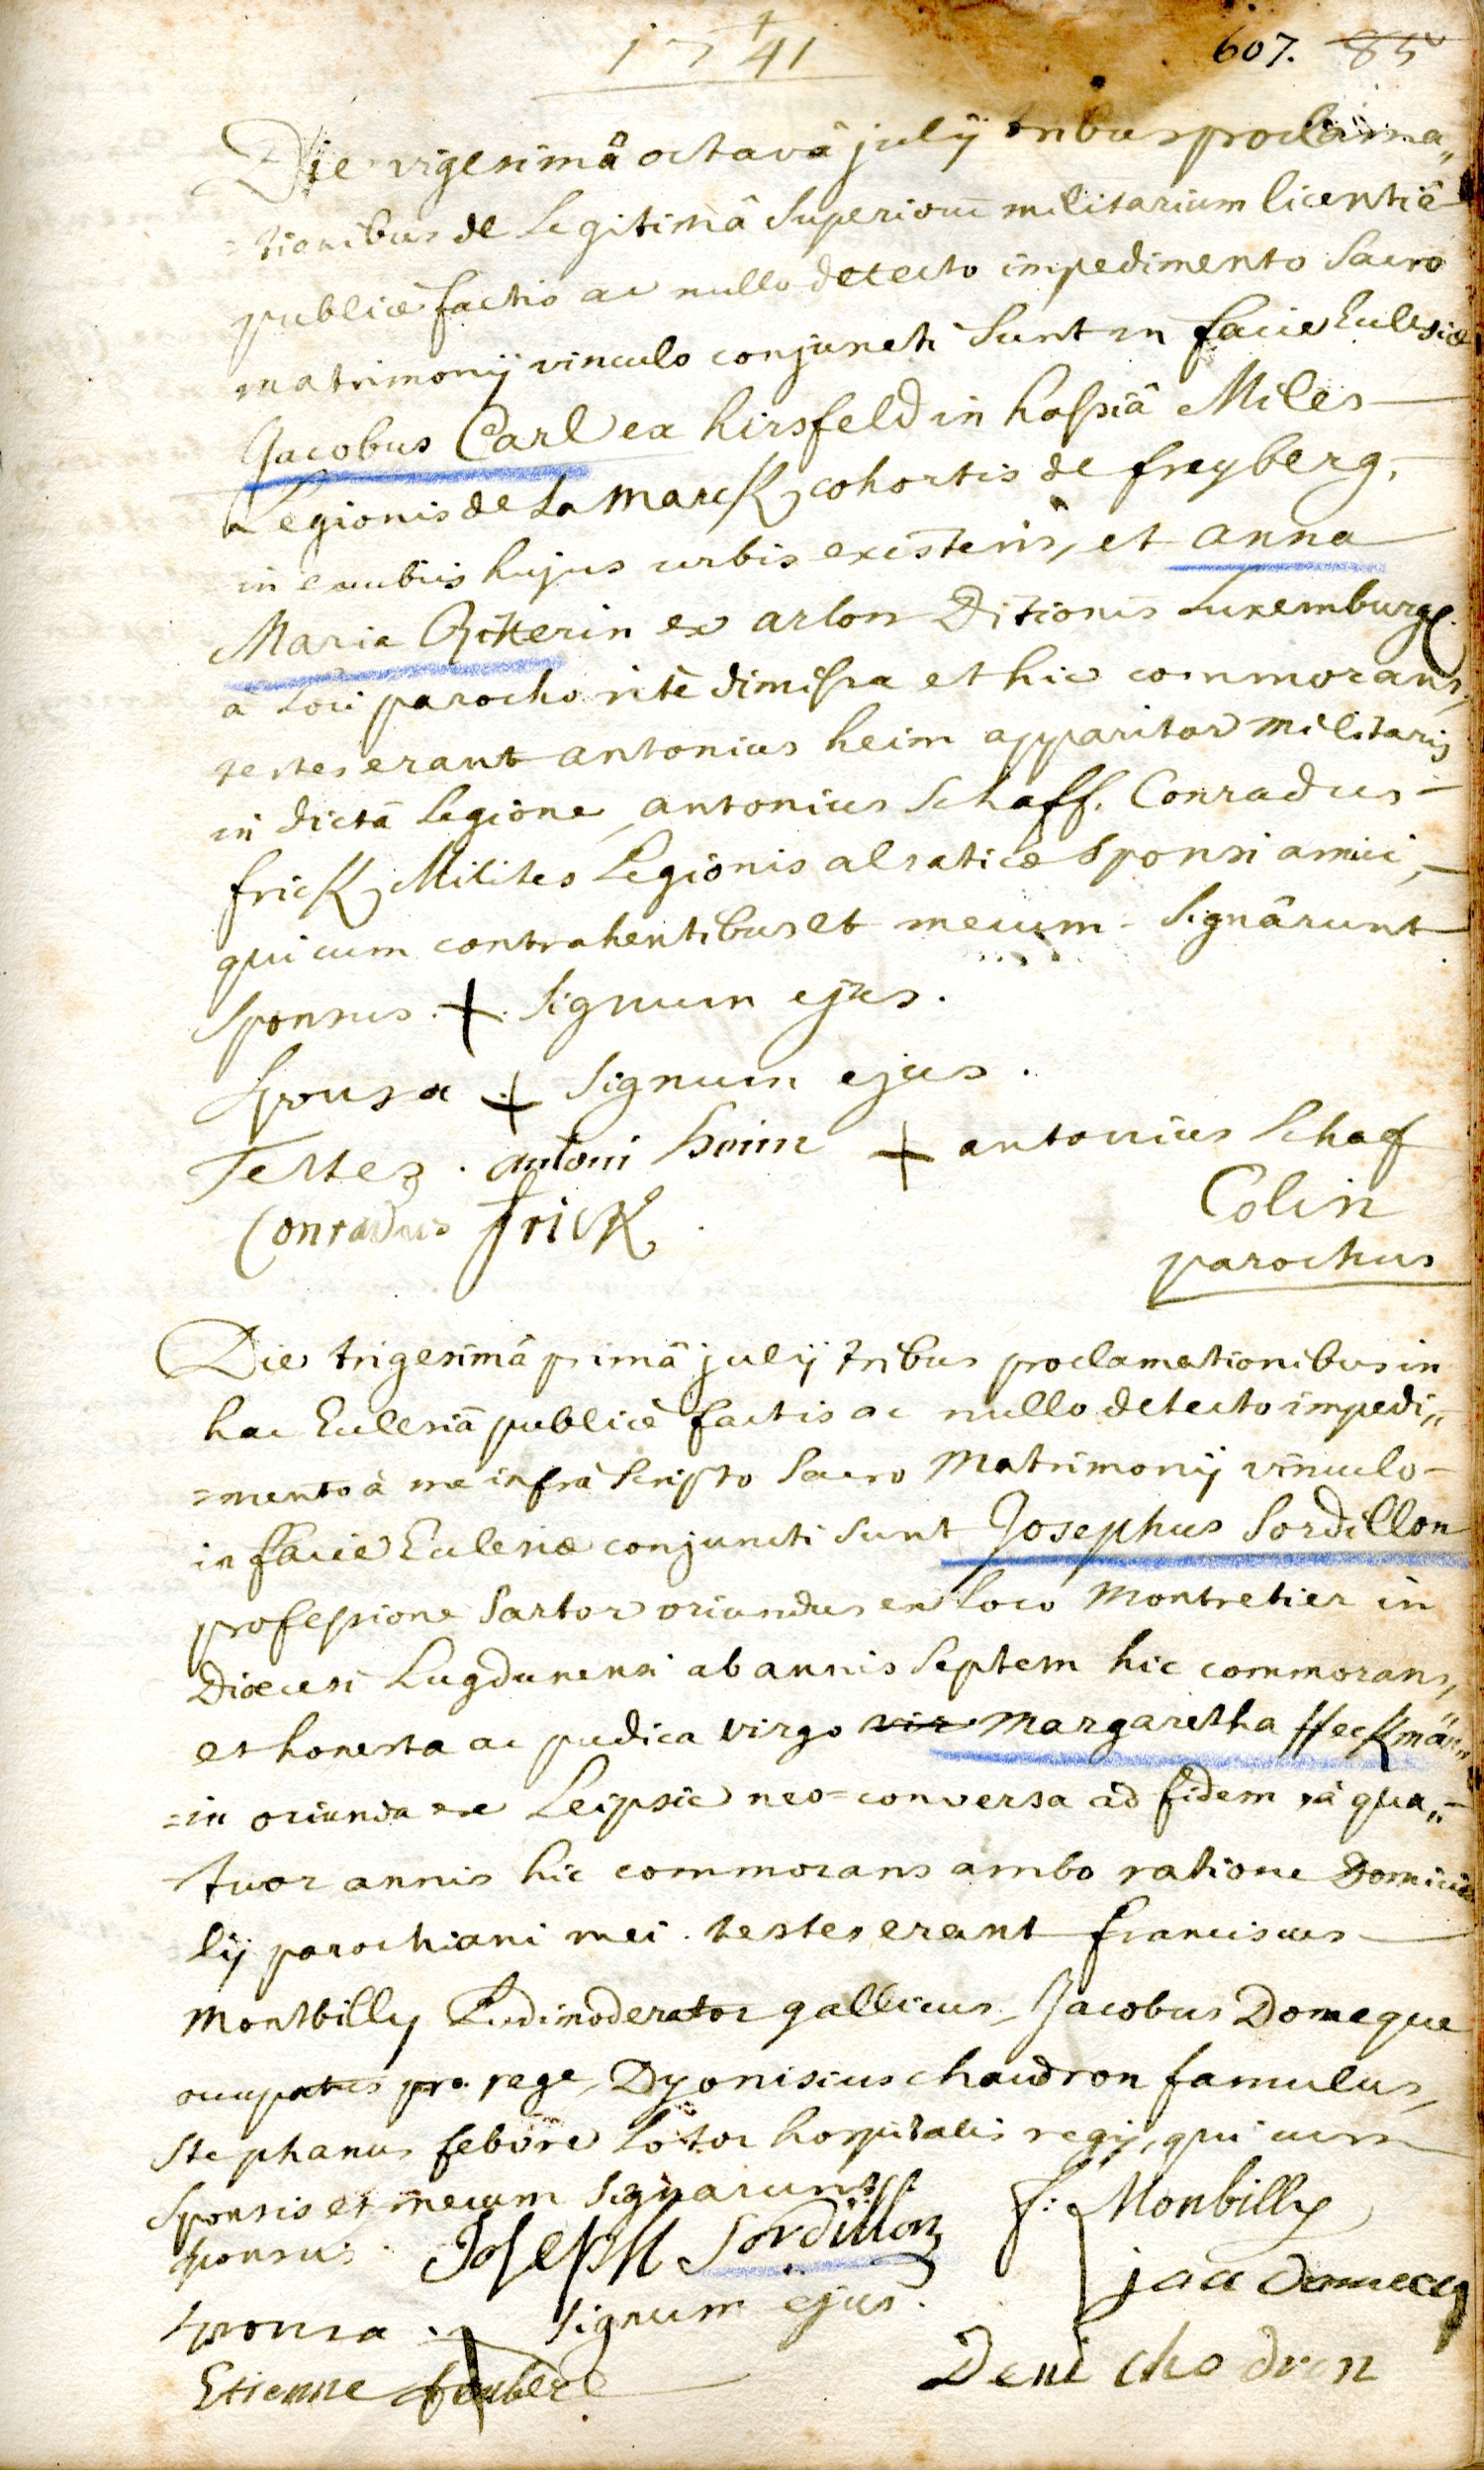 1741
607. 85
Die vigesimâ octavâ julÿ tribus proclama„
=tionibus de Legitimâ Superiorū militarium licentiâ
publicè factis ac nullo detecto impedimento Sacro
matrimonÿ vinculo conjuncti Sunt in facie Eclesiæ
Jacobus Carl ex hirsfeld in hassiâ Miles
Legionis de La Marck cohortis de freyberg,
in exubiis hujus urbis existens, et anna
Maria Ritterin ex arlon Ditionis Luxemburg.
à Loci parocho ritè dimissa et hic commorans,
testes erant antonius heim apparitor militaris
in dictâ Legione, antonius Schaff, Conradus
frick Milites Legionis alsaticæ Sponsi amici,
qui cum contrahentibus et mecum Signârunt
Sponsus + Signum ejus.
Sponsa + Signum ejus.
Testes. antoni heim + antonius Schaf
Conradus frick
Colin
parochus
Die trigesimâ primâ julÿ tribus proclamationibus in
hac Eclesiâ publicè factis ac nullo detecto impedi„
=mento à me infrà Scripto Sacro Matrimonÿ vinculo
in facie Eclesiæ conjuncti Sunt Josephus Sordillon
professione Sartor oriundus ex loco Montretier in
Diœcesi Lugdunensi ab annis Septem hic commorans,
et honesta ac pudica virgo vir Margaretha Heckmän„
=in oriunda ex Leipsic neo=conversa ad fidem à qua„
tuor annis hic commorans ambo ratione Domici
lÿ parochiani mei. testes erant franciscus
Montbilly Ludimoderator gallicus, Jacobus Domeque
ocupatus pro rege, Dyonisius chaudron famulus,
Stephanus febvre Lotor hospitalis regÿ, qui cum
Sponsis et mecum Signarunt
Sponsus. Joseph Sordillon f: Monbilly
jaa domecq
Sponsa + Signum ejus.
Etienne foubere Deni chodron